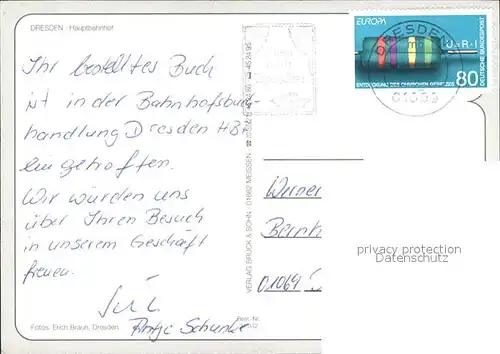 DRESDEN · Hauptbahnhof
Ihr bestelltes Buch
ist in der Bahnhofsbuch-
handlung Dresden HBF
eingetroffen.
Wir würden uns
über Ihren Besuch
in unserem Geschäft
freuen.
Antje
Fotos: Erich Braun, Dresden
Best.-Nr.
VERLAG BRÜCK & SOHN · 01662 MEISSEN
EUROPA
U=R·I
ENTDECKUNG DES OHMSCHEN GESETZES
80
DEUTSCHE BUNDESPOST
DRESDEN
01099
Werner
Bernh
01069
privacy protection
Datenschutz